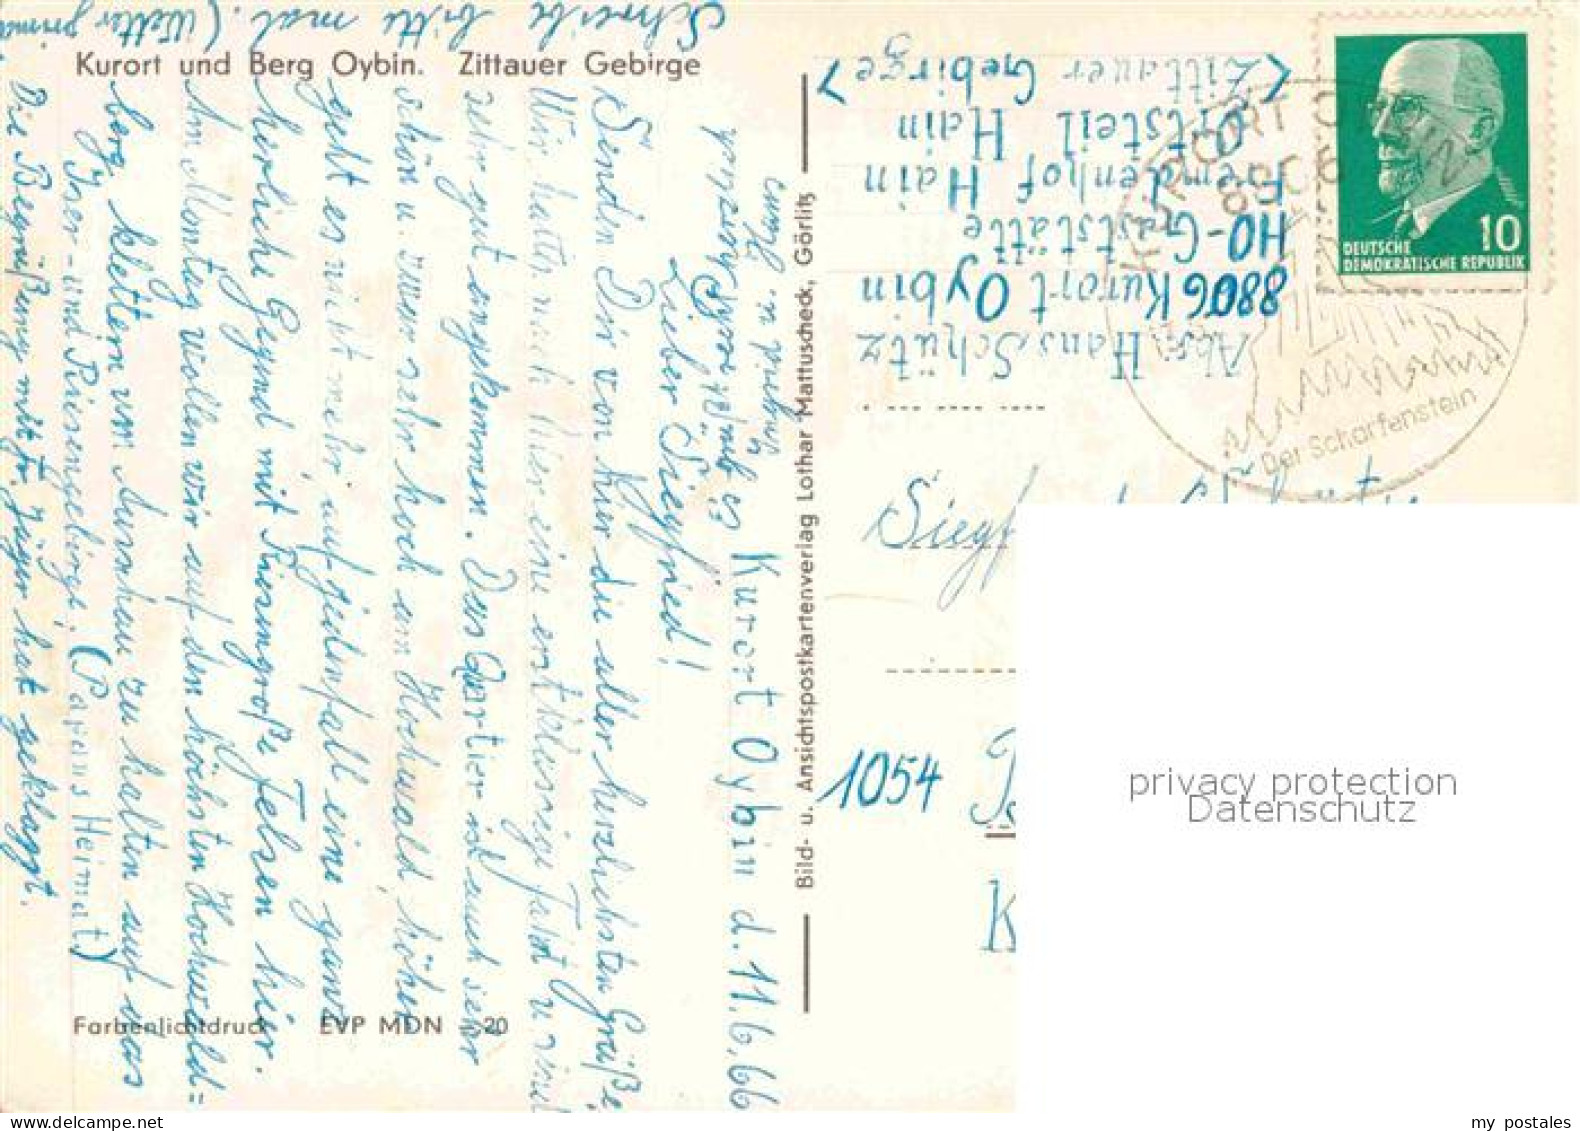 Kurort und Berg Oybin. Zittauer Gebirge
Schreibe bitte mal. (Wetter prima
Kurort Oybin d. 11.6.66
Lieber Siegfried!
Senden Dir von hier die aller herzlichsten Grüße
Wir hatten nach hier eine erstklassige Fahrt u. sind
sehr gut angekommen. Das Quartier ist auch sehr
schön u. zwar sehr hoch am Hochwald, höher
geht es nicht mehr, auf jedenfall eine ganz
herrliche Gegend mit Riesengroße Felsen hier.
Am Montag wollen wir auf den höchsten Hochwald=
berg klettern um Ausschau zu halten auf das
Iser- und Riesengebirge, (Papas Heimat)
Die Begrüßung mit fr. Jäger hat geklappt.
Farbenlichtdruck EVP MDN 20
Bild- u. Ansichtspostkartenverlag Lothar Mattuscheck, Görlitz
Abs. Hans Schütz
8806 Kurort Oybin
HO-Gaststätte
Fremdenhof Hain
Ortsteil Hain
<Zittauer Gebirge>
KURORT OYBIN
8806
Der Scharfenstein
10
DEUTSCHE
DEMOKRATISCHE REPUBLIK
1054
K
privacy protection
Datenschutz
my postales